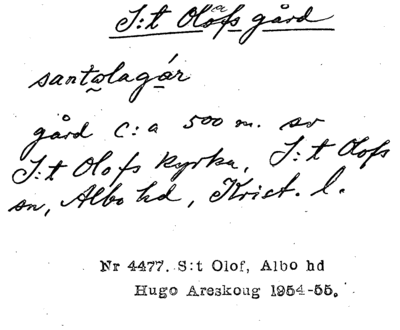 S:t Olofs gård
santolagår
gård c:a 500 m. sv
S:t Olofs kyrka, S:t Olofs
sn, Albo hd, Krist. l.
Nr 4477. S:t Olof, Albo hd
Hugo Areskoug 1954-55.